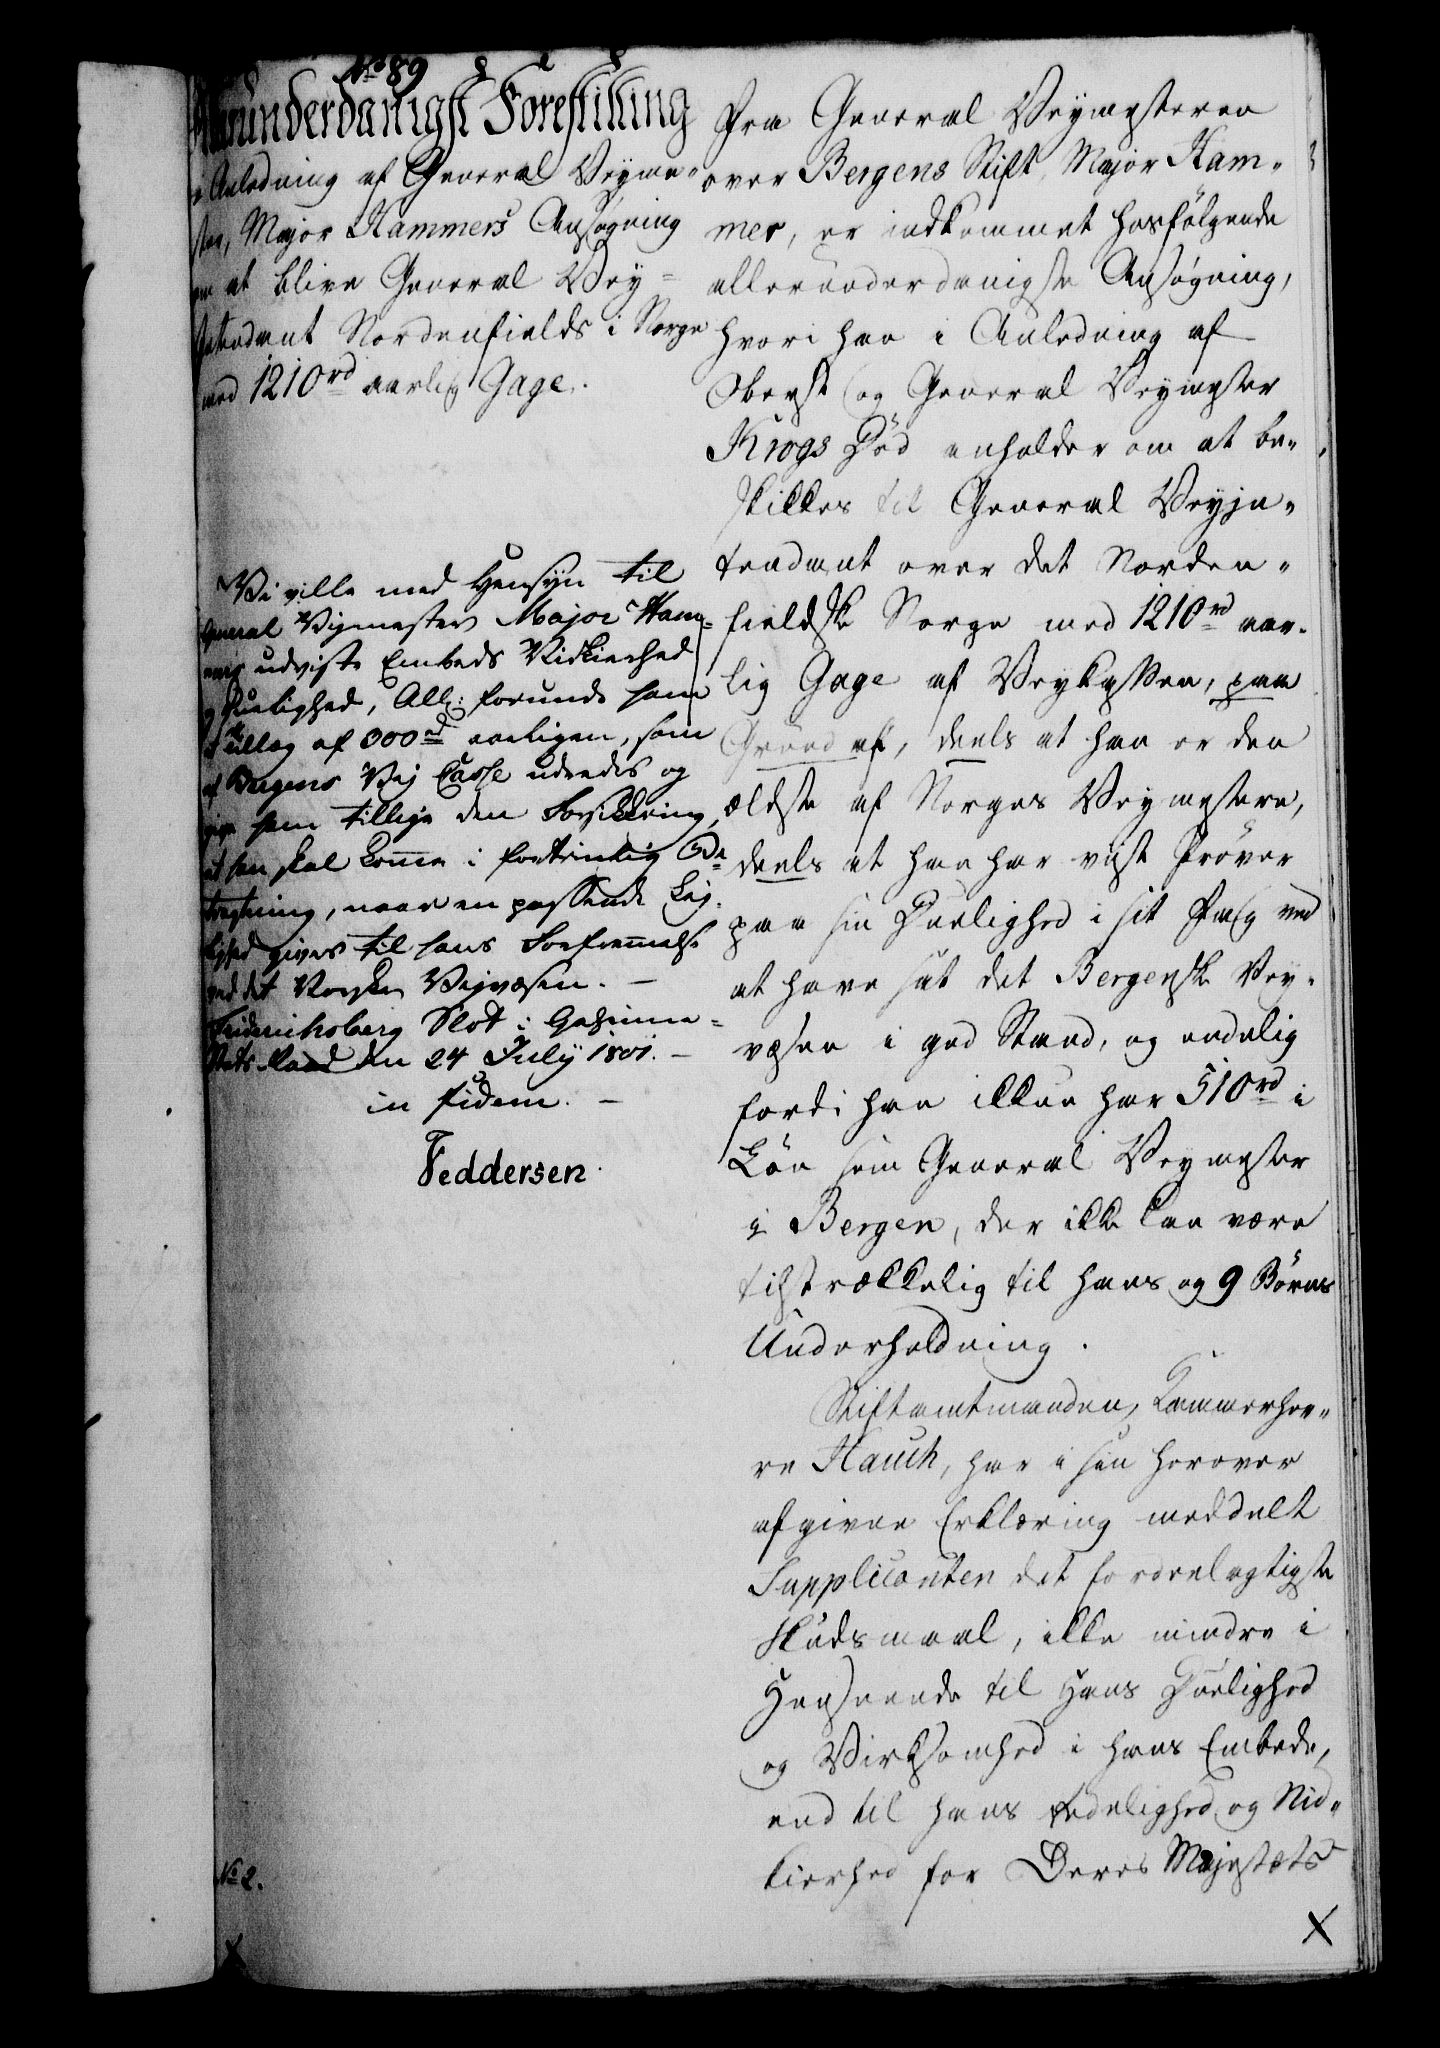 No 89
Allerunderdanigst Forestilling
i Anledning af General Veyme-
ster, Major Hammers Ansøgning
om at blive General Vey-
Intendant Nordenfields i Norge
med 1210 rd aarlig Gage.
Vi ville med Hensyn til
General Vejmester Major Ham-
mers udviste Embeds Nidkierhed
og Duelighed, Allern: forunde ham
et Tillæg af 300 rd aarligen, som
af Bergens Vej Casse udredes og
give ham tillige den Forsikkring,
at han skal komme i fortrinlig Be-
tragtning, naar en passende Lej-
lighed gives til hans Forfremmelse
ved det Norske Vejvæsen. -
Friderichsberg Slot i Geheime-
Stats-Raad den 24 July 1801. -
in fidem. -
Feddersen.
No 2.
Fra General Veymesteren
over Bergens Stift, Major Ham-
mer, er indkommet hosfølgende
allerunderdanigste Ansøgning,
hvori han i Anledning af
Oberst og General Veymester
Krogs Död anholder om at be-
skikkes til General Veyin-
tendant over det Norden-
fieldske Norge med 1210 rd aar-
lig Gage af Veykassen, paa
Grund af, deels at han er den
ældste af Norges Veymestere,
deels at han har viist Prøver
paa sin Duelighed i sit Fag ved
at have sat det Bergenske Vey-
væsen i god Stand, og endelig
fordi han ikkun har 510 rd i
Løn som General Veymester
i Bergen, der ikke kan være
tilstrækkelig til hans og 9 Börns
Underholdning.
Stiftamtmanden, Kammerher-
re Hauch, har i sin herover
afgivne Erklæring meddelt
Supplicanten det fordeelagtigste
Skudsmaal, ikke mindre i
Henseende til Hans Duelighed
og Virksomhed i hans Embede,
end til hans Redelighed og Nid-
kierhed for Deres Majestæts